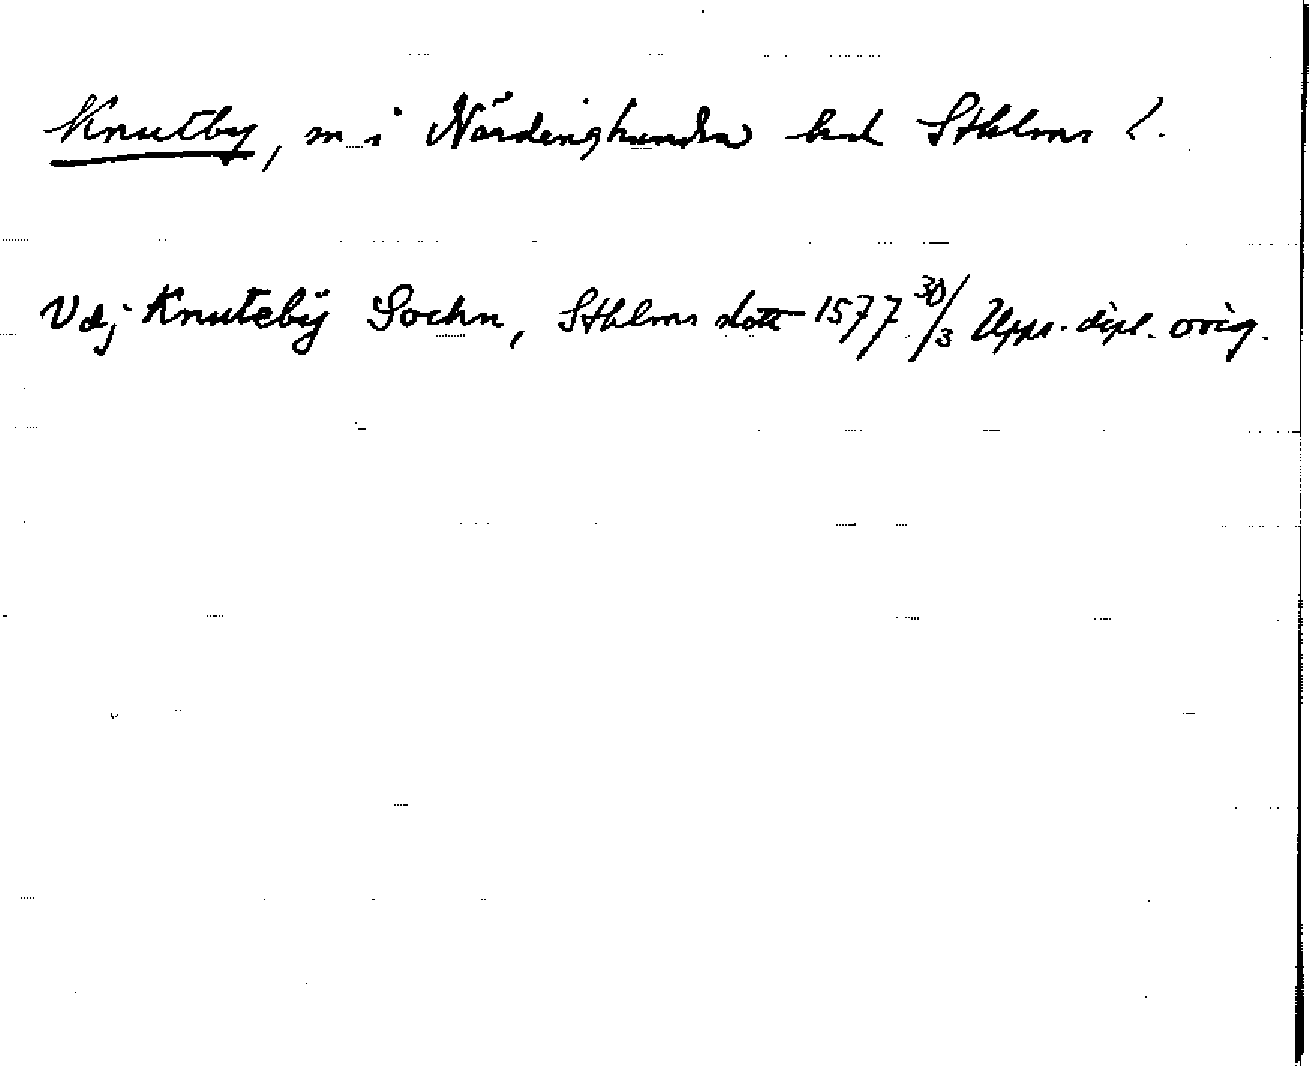 Knutby, sn i Närdinghundra hd Sthlms l.
Vdj Knutebÿ Sochn, Sthlms slott 1577 30/3 Upps. dipl. orig.